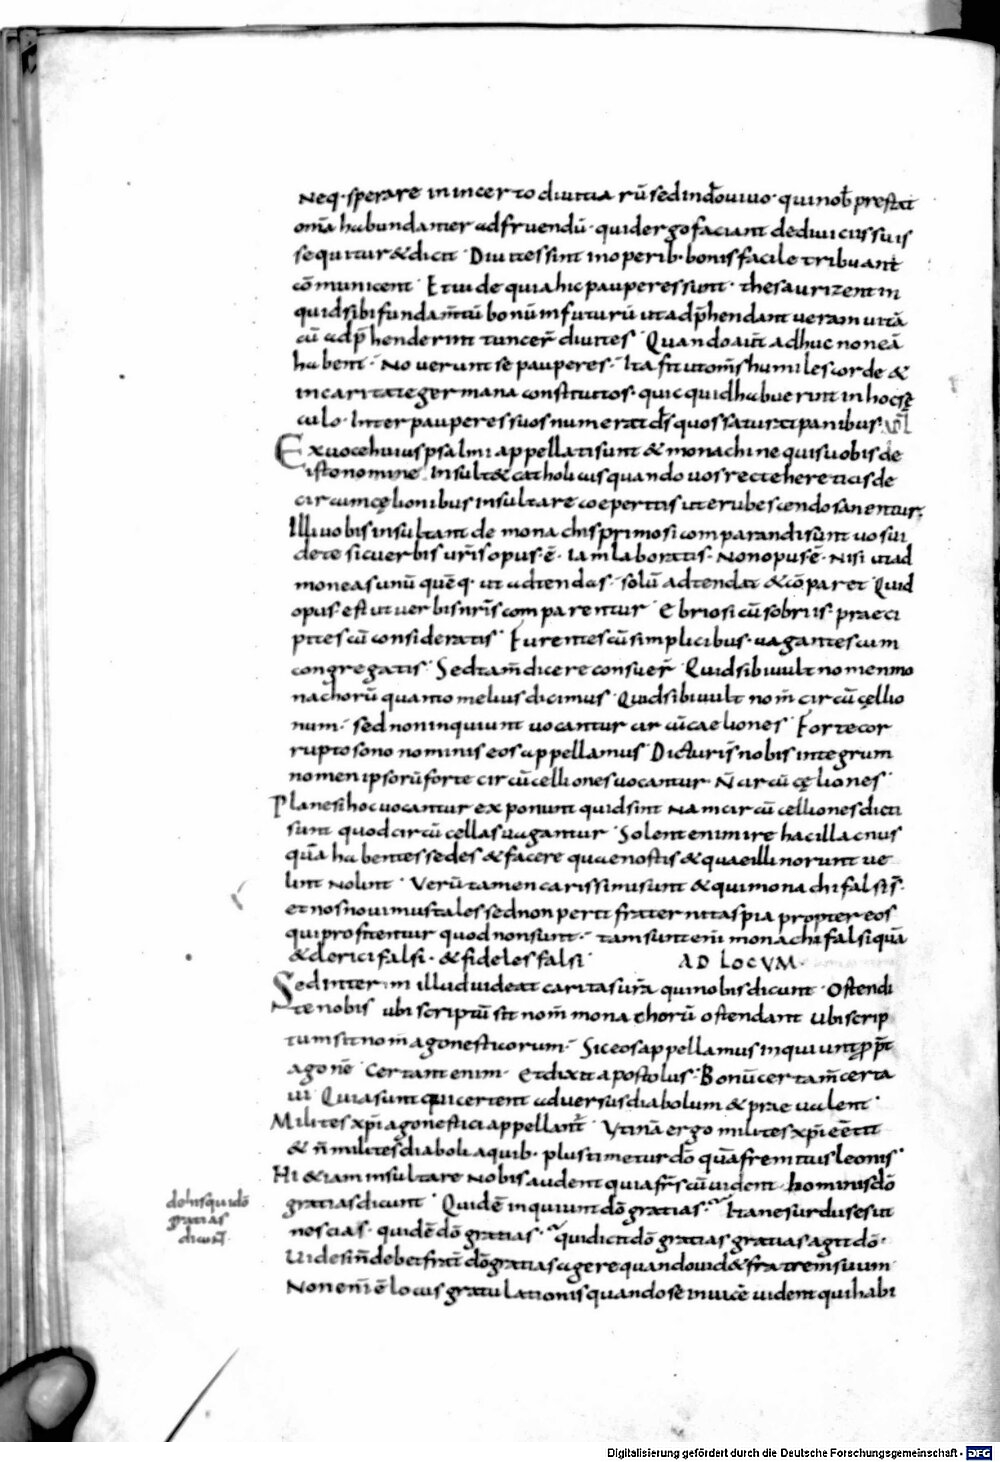 Neq· sperare inincerto diuitiarū sedindō uiuo· quinob̄ prestat
om̄a habundanter adfruendū· quidergofaciant dediuitiissuis
sequitur&dicit· Diuitessint inoperib· bonisfacile tribuant
cōmunicent· Etuidequiahicpauperessunt· thesaurizentin
quidsibifundam̄tū bonū infuturū utadp̄hendant ueram uitā
cū adp̄henderint tuncer̄ diuites· Quandoaut̄ adhuc noneā
habent· Nouerunt se pauperes· Ita fit utom̄s humilescorde &
incaritategermana constitutos· quicquidhabuerint inhocsę
culo· Interpauperessuosnumerat d̄s quossaturat panibus·
Exuocehuiuspsalmi appellatisunt & monachinequisuobisde
istonomine insult& catholicusquando uosrectehereticisde
circumcęlionibusinsultare coeperitis uterubescendosanentur,
Illiuobisinsultant de monachisprimosicomparandisunt uosui
dete sicuerbis ur̄is opus· ē· Iamlaboratis· Nonopus·ē· Nisi utad
moneasunū quēq· ut adtendas· solū adtendat &cōparet Quid
opus· est ut uerbisnr̄is comparentur Ebriosi cū sobriis· praeci
pitescū consideratis· Furentescū simplicibus· uagantescum
congregatis· Sedtam̄dicereconsuer̄· Quidsibiuult nomenmo
nachorū quantomeliusdicimus· Quidsibiuult nom̄ circūcellio
num· sed noninquiunt uocantur circūcaeliones· Fortecor
ruptosono nominis eosappellamus· Dicturisnobis integrum
nomenipsorūforte circūcellionesuocantur· N̄ circūcęliones·
Planesihocuocantur exponant quidsint Namcircūcellionesdicti
sunt quodcircūcellasuagantur· Solentenimire hacillacnus
quā habentessedes &facere quaenostis&quaeilli norunt ue
lint nolint· Verūtamencarissimisunt &quimonachifalsis̄·
etnosnouimustalessednonperit fraternitaspia propter eos
quiprofitentur quodnonsunt· tamsunteni monachifalsiquā
&clericifalsi· &fidelesfalsi· AD LOCVM·
Sedinterim illuduideat caritasur̄a quinobisdicunt· Ostendi
tenobis ubi scriptū sit nom̄ monachorū ostendant ubiscrip
tumsitnom̄ agonesticorum· Siceosappellamus inquiuntp̄p̄t
agonē Certantenim· Etdixit apostolus· Bonūcertam̄certa
ui Quiasunt quicertent aduersusdiabolum & praeualent·
Milites xp̄i agonesticiappellant̄· Vtinā ergo milites xp̄i eēnt
& n̄ militesdiaboli aquib· plustimetur dō quāfremituisleonis·
Hi &iaminsultare nobis audent quiafr̄s cū uident hominisdō
gratiasdicunt· Quidē inquiunt dōgratias· Itanesurdusesut
nescias· quidē dō gratias· quidicit dō gratias gratiasagit dō·
Uidesin̄debetfrat̄ dōgratiasagerequandouid&fratrem̄suum
Noneni ē locusgratulationisquandosē inuicē uident quihabi
dehisquidō
gratias
dicunt
Digitalisierung gefördert durch die Deutsche Forschungsgemeinschaft - DFG